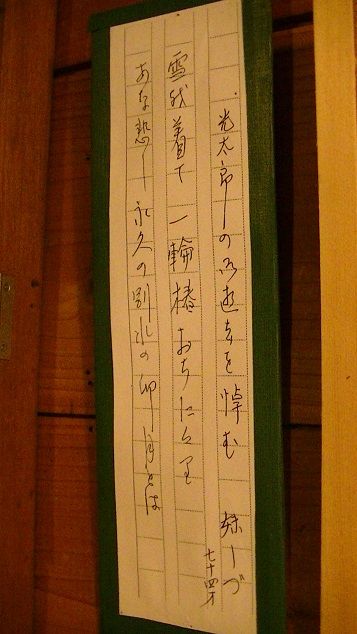 光太郎しの御逝去を悼む しづ
七十四才
雪 着て 一輪椿おちにけり
あな悲し 永久の別れの卯月とは